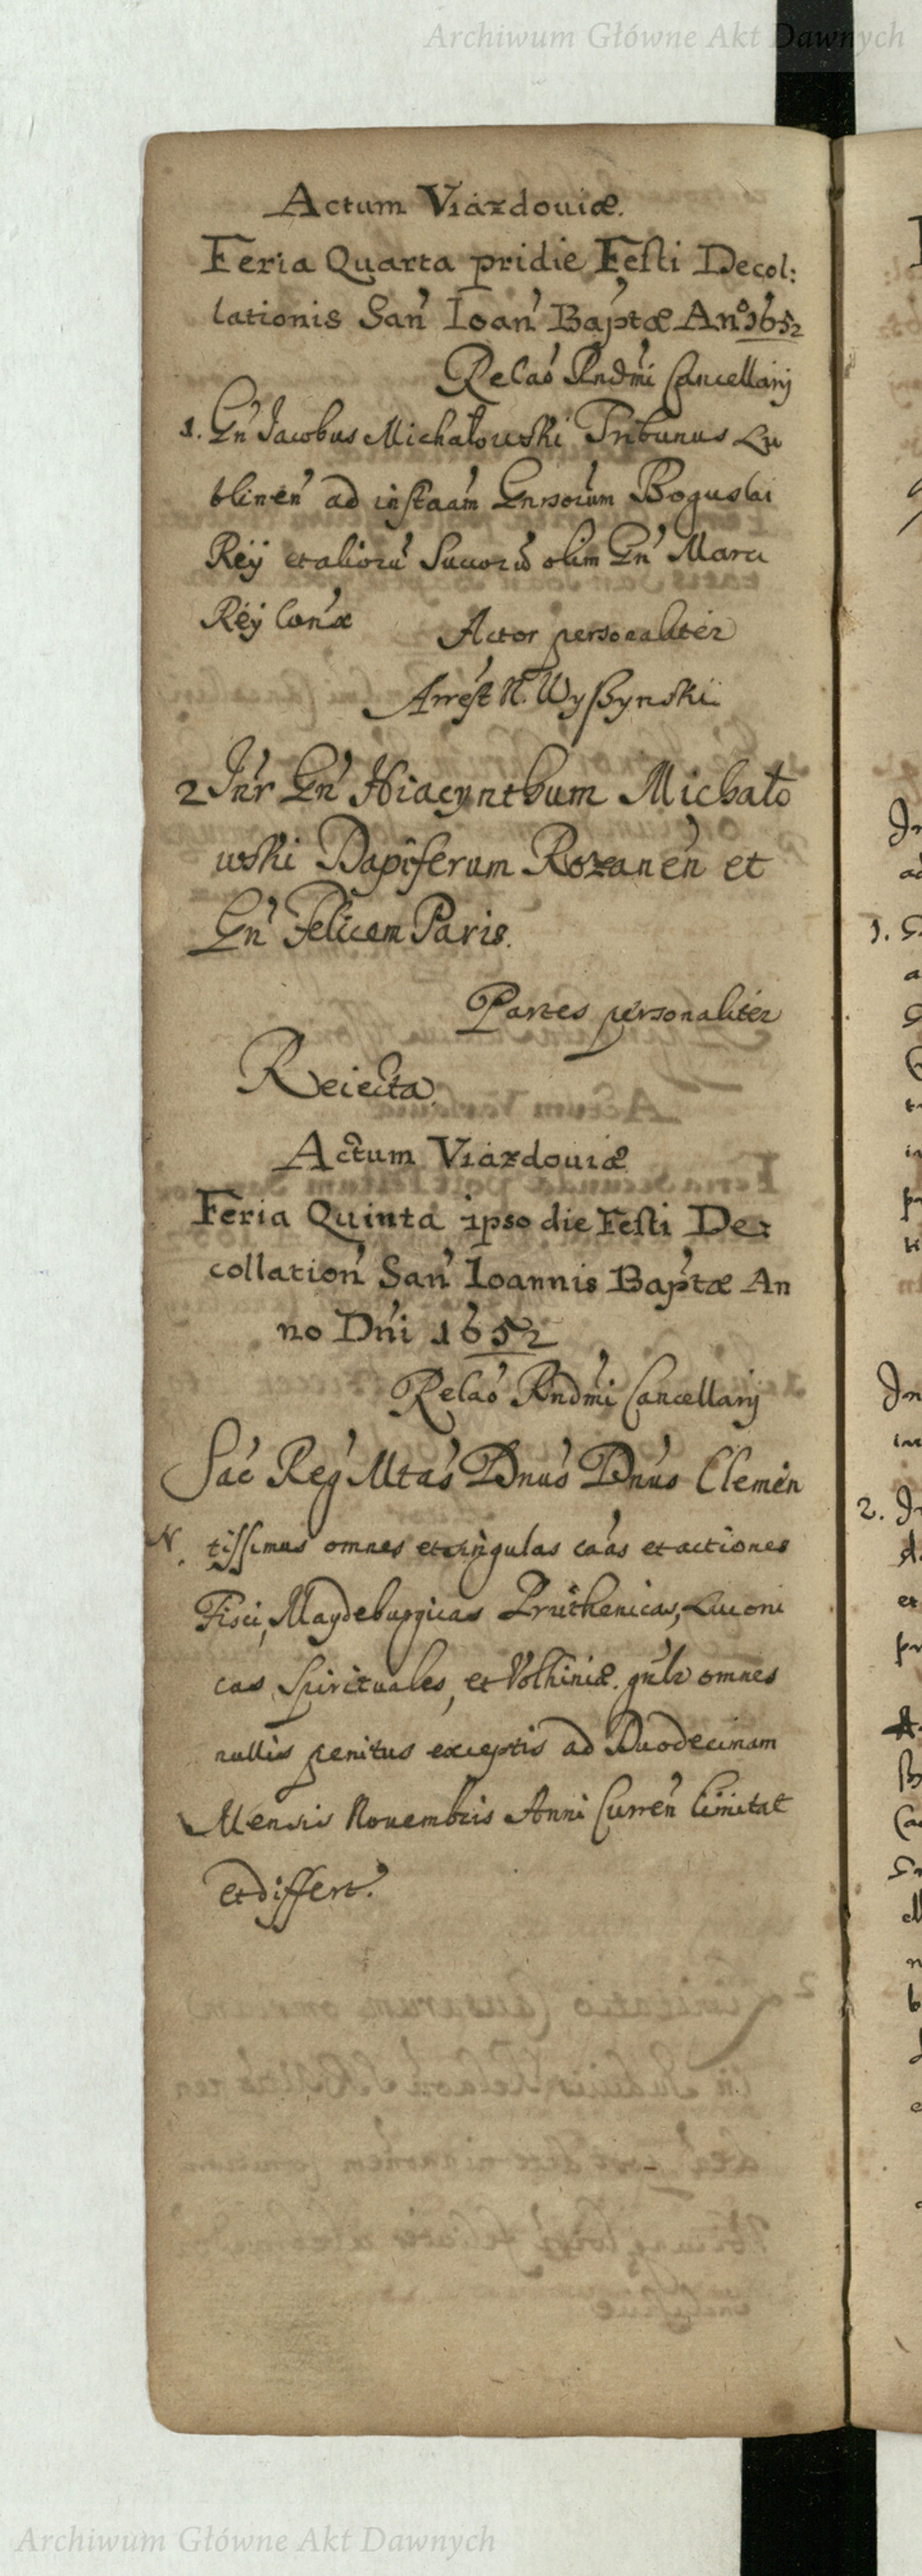 Archiwum Główne Akt Dawnych
Actum Viazdouiæ.
Feria Quarta pridie Festi Decol:
lationis San' Ioan' Bap'tæ An° 1652
Relao' Rndm'i Cancellarij
1. Gn' Jacobus Michałowski Tribunus Lu
blinen' ad instaam' Gnrsorum Boguslai
Reÿ et alioru' Succoru' olim Gn' Marci
Reÿ Con'æ
Actor personaliter
Arrest N. Wyszynskii
2 In'r Gn' Hiacynthum Michało
wski Dapiferum Rozanen' et
Gn' Felicem Paris.
Partes personaliter
Reiecta
Actum Viazdouiæ
Feria Quinta ipso die Festi De:
collation' San' Ioannis Bap'tæ An
no Dn'i 1652
Relao' Rndm'i Cancellarij
Sac' Reg' Mtas' Dnus' Dnus' Clemen
N. tissimus omnes et singulas caas' et actiones
Fisci, Magdeburgicas Pruthenicas, Liuoni
cas Spirituales, et Volhiniæ. gn'lr omnes
nullis penitus exceptis ad Duodecimam
Mensis Nouembris Anni Curren' limitat
et differt.
Archiwum Główne Akt Dawnych